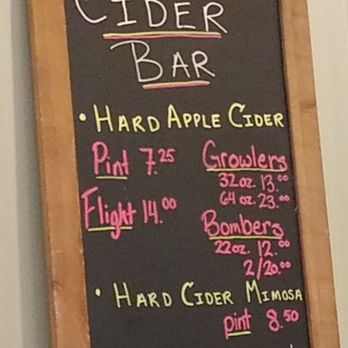 CIDER
BAR
• HARD APPLE CIDER
Pint 7.25
Flight 14.00
Growlers
32oz. 13.00
64 oz. 23.00
Bombers
22oz. 12.00
2/20.00
• HARD CIDER MIMOSA
pint 8.50